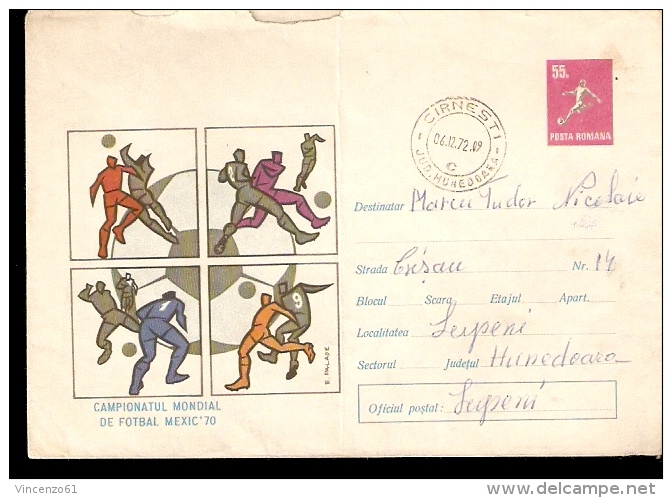 55B
POSTA ROMANA
CIRNESTI
06.12.72.09
JUD. HUNEDOARA
C
Destinatar Marcu Tudor Nicolaie
Strada Crișan Nr. 14
Blocul Scara Etajul Apart.
Localitatea
Sectorul Județul Hunedoara
Oficiul poștal:
7
9
E. PALADE
CAMPIONATUL MONDIAL
DE FOTBAL MEXIC'70
Vincenzo61
delcampe.net